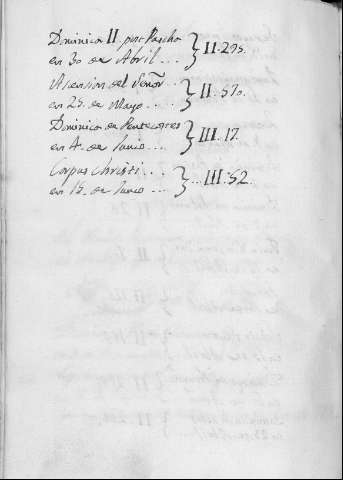 Dominica II post Pascha
en 30 de Abril ... } II. 295.
Ascension del Señor
en 25 de Mayo .... } II. 570.
Dominica de Pentecostes
en 4. de Junio ... } III. 17.
Corpus Christi ...
en 15. de Junio ... } ... III. 52.